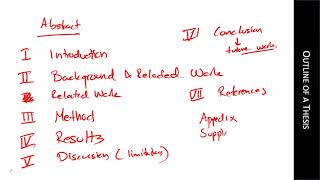 Abstract
I Introduction
II Background & Related Work
Related Work
III Method
IV Results
V Discussion (limitations)
VI Conclusion
future work.
VII References
Appedix
Suppl
OUTLINE OF A THESIS